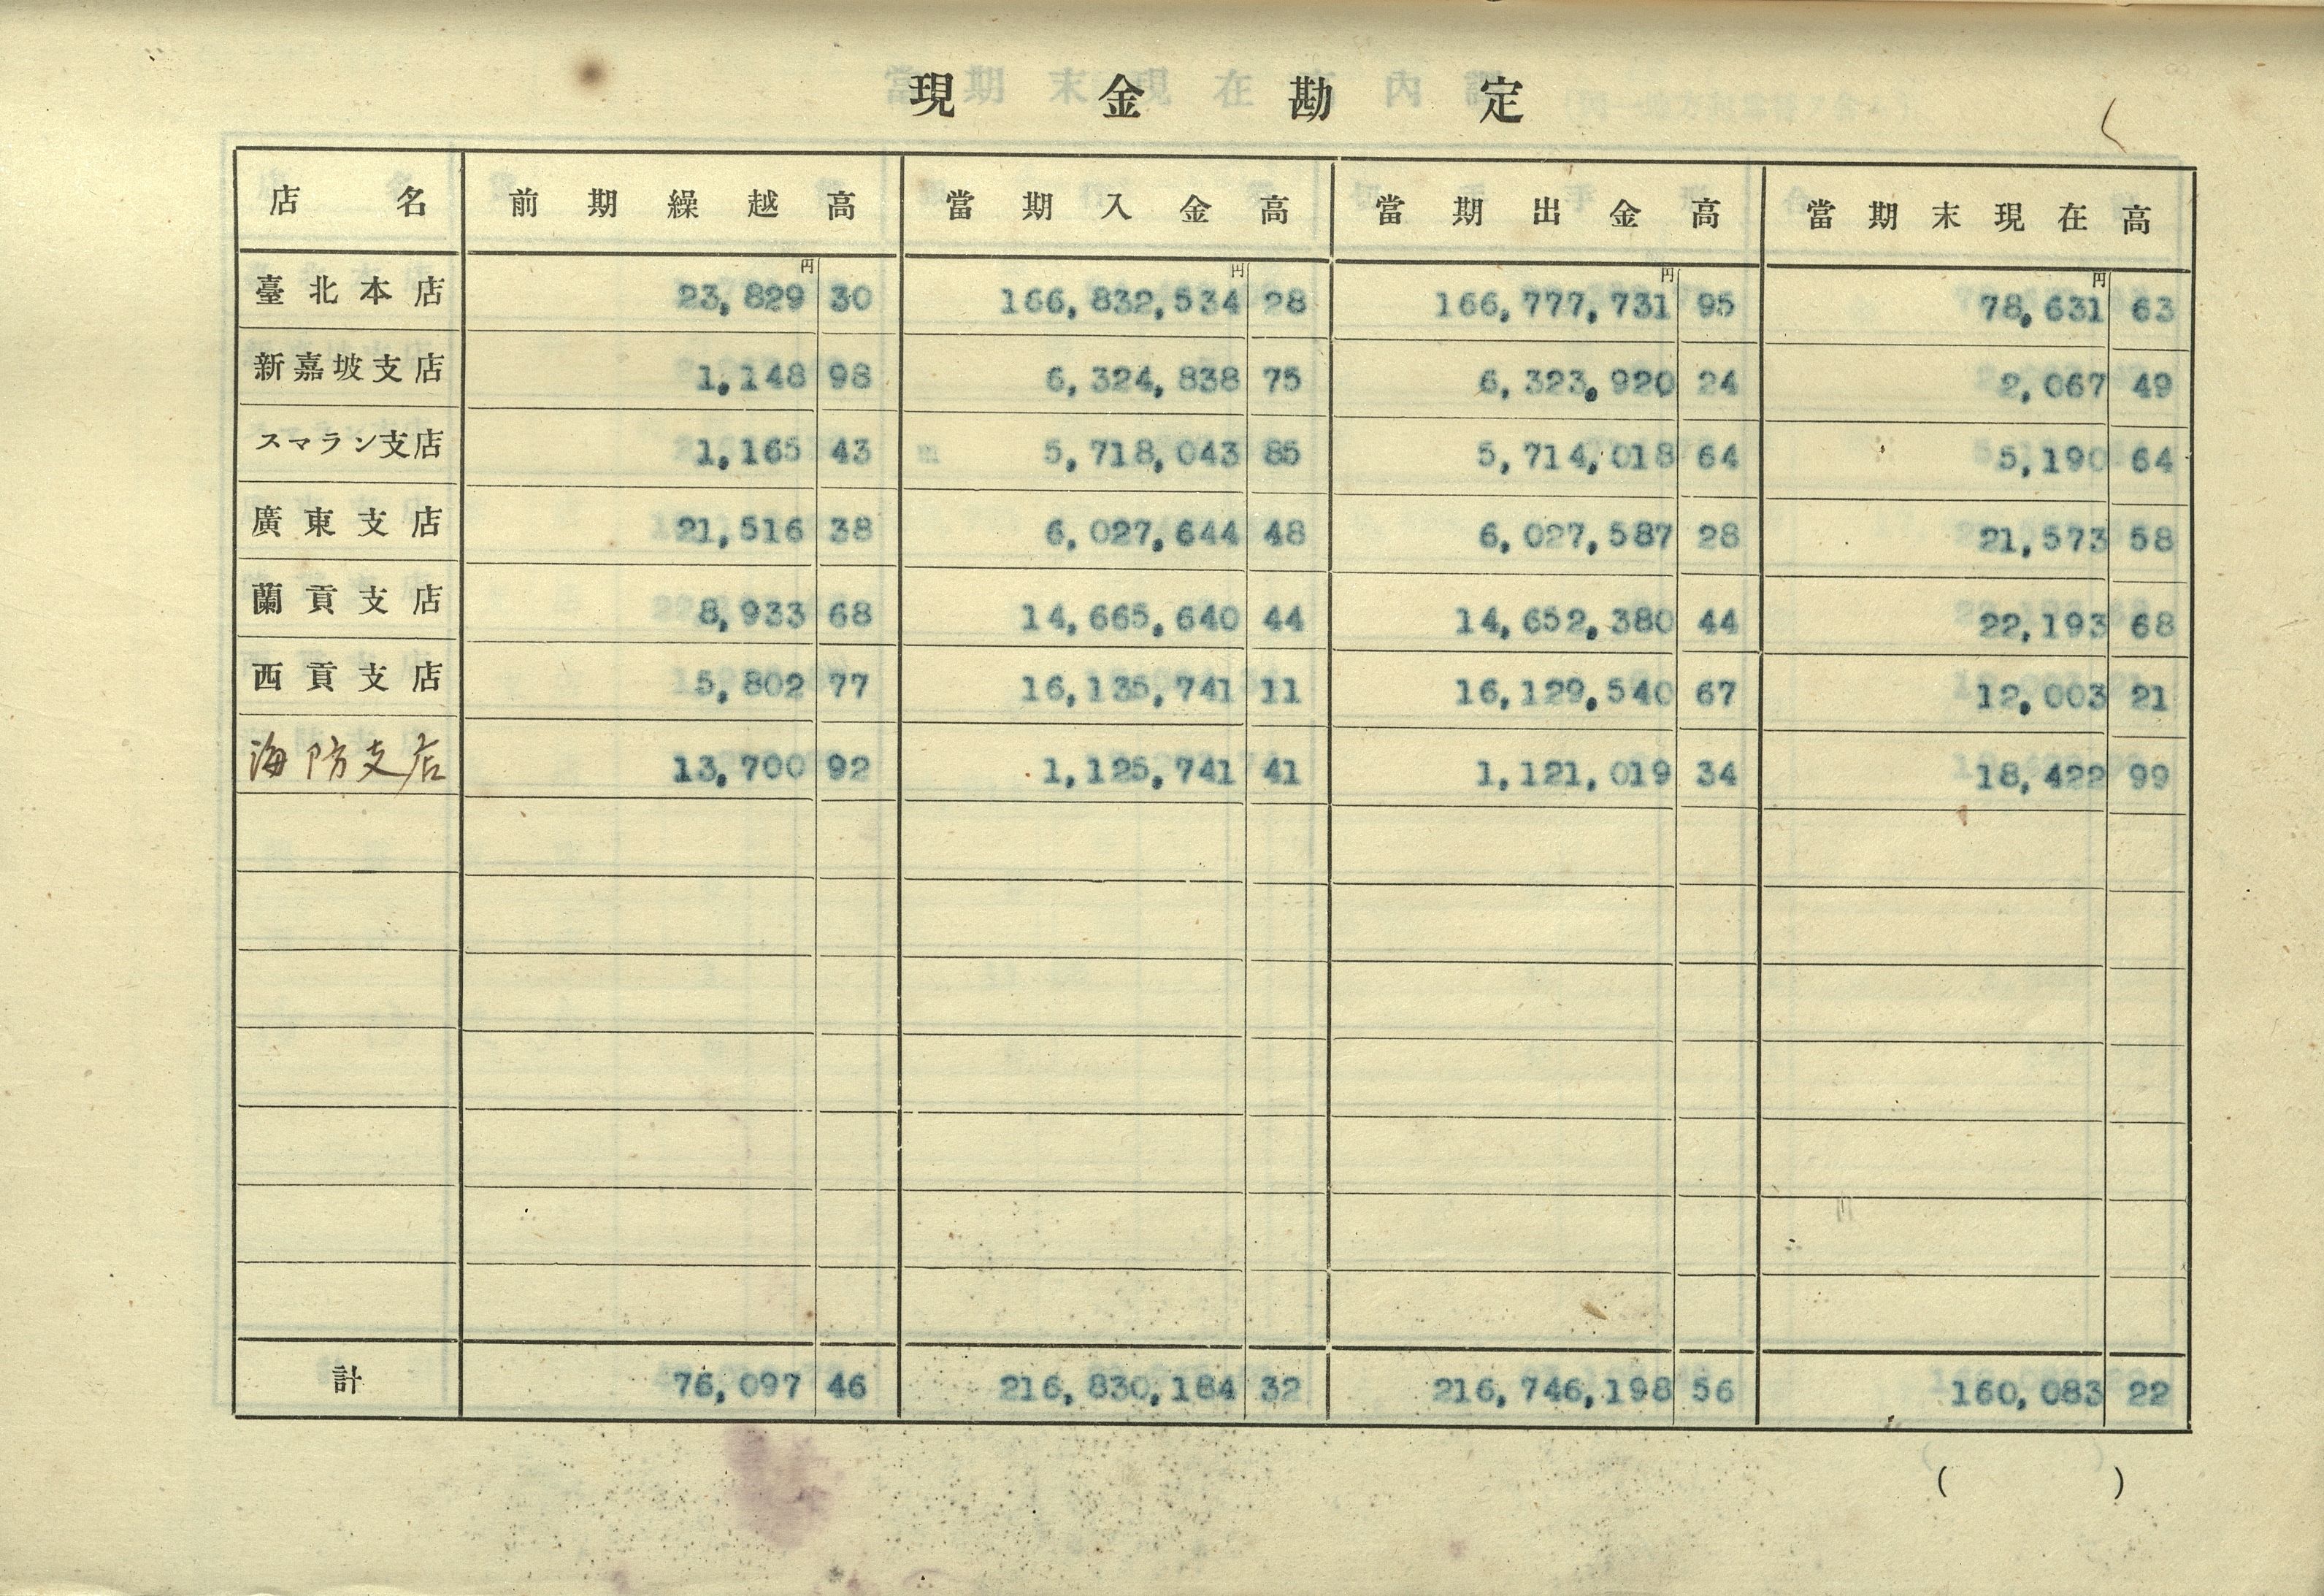 現金勘定
店名 前期繰越高 當期入金高 當期出金高 當期末現在高
円 円 円 円
臺北本店 23,829 30 166,832,534 28 166,777,731 95 78,631 63
新嘉坡支店 1,148 98 6,324,838 75 6,323,920 24 2,067 49
スマラン支店 1,165 43 5,718,043 85 5,714,018 64 5,190 64
廣東支店 21,516 38 6,027,644 48 6,027,587 28 21,573 58
蘭貢支店 8,933 68 14,665,640 44 14,652,380 44 22,193 68
西貢支店 5,802 77 16,135,741 11 16,129,540 67 12,003 21
海防支店 13,700 92 1,125,741 41 1,121,019 34 18,422 99
計 76,097 46 216,830,184 32 216,746,198 56 160,083 22
( )